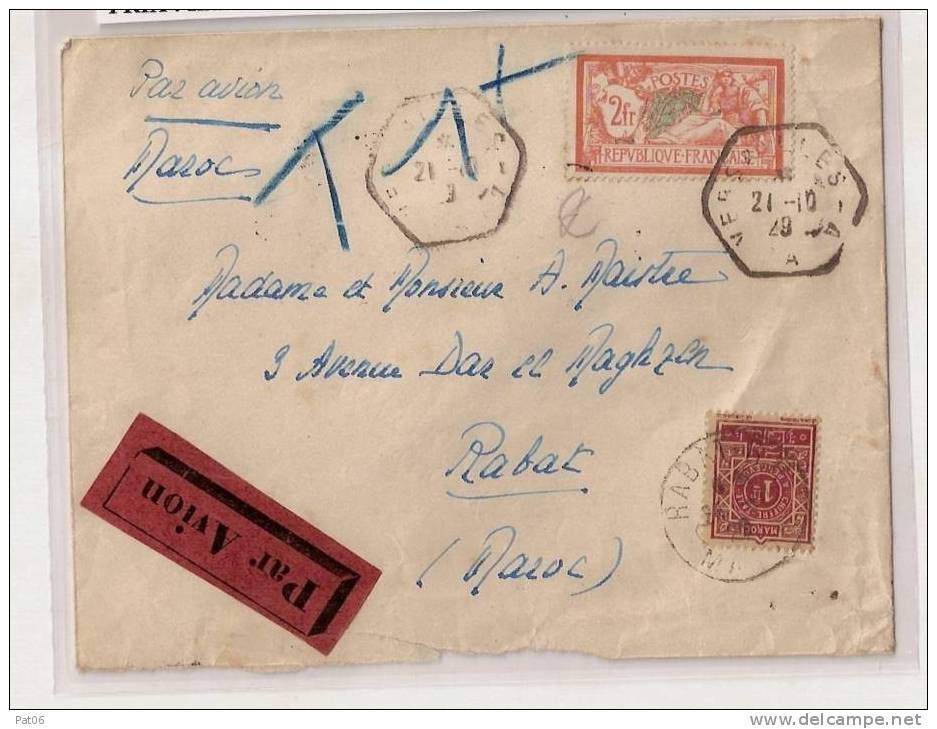 Par avion
Maroc
T 1+
POSTES
2fr
REPVBLIQVE·FRANÇAISE
21-10
21-10
29
A
Madame et Monsieur A. Maistre
9 Avenue Dar el Maghzen
Rabat
(Maroc)
Par Avion
RABAT
MAROC
1F
Pat06
www.delcampe.net